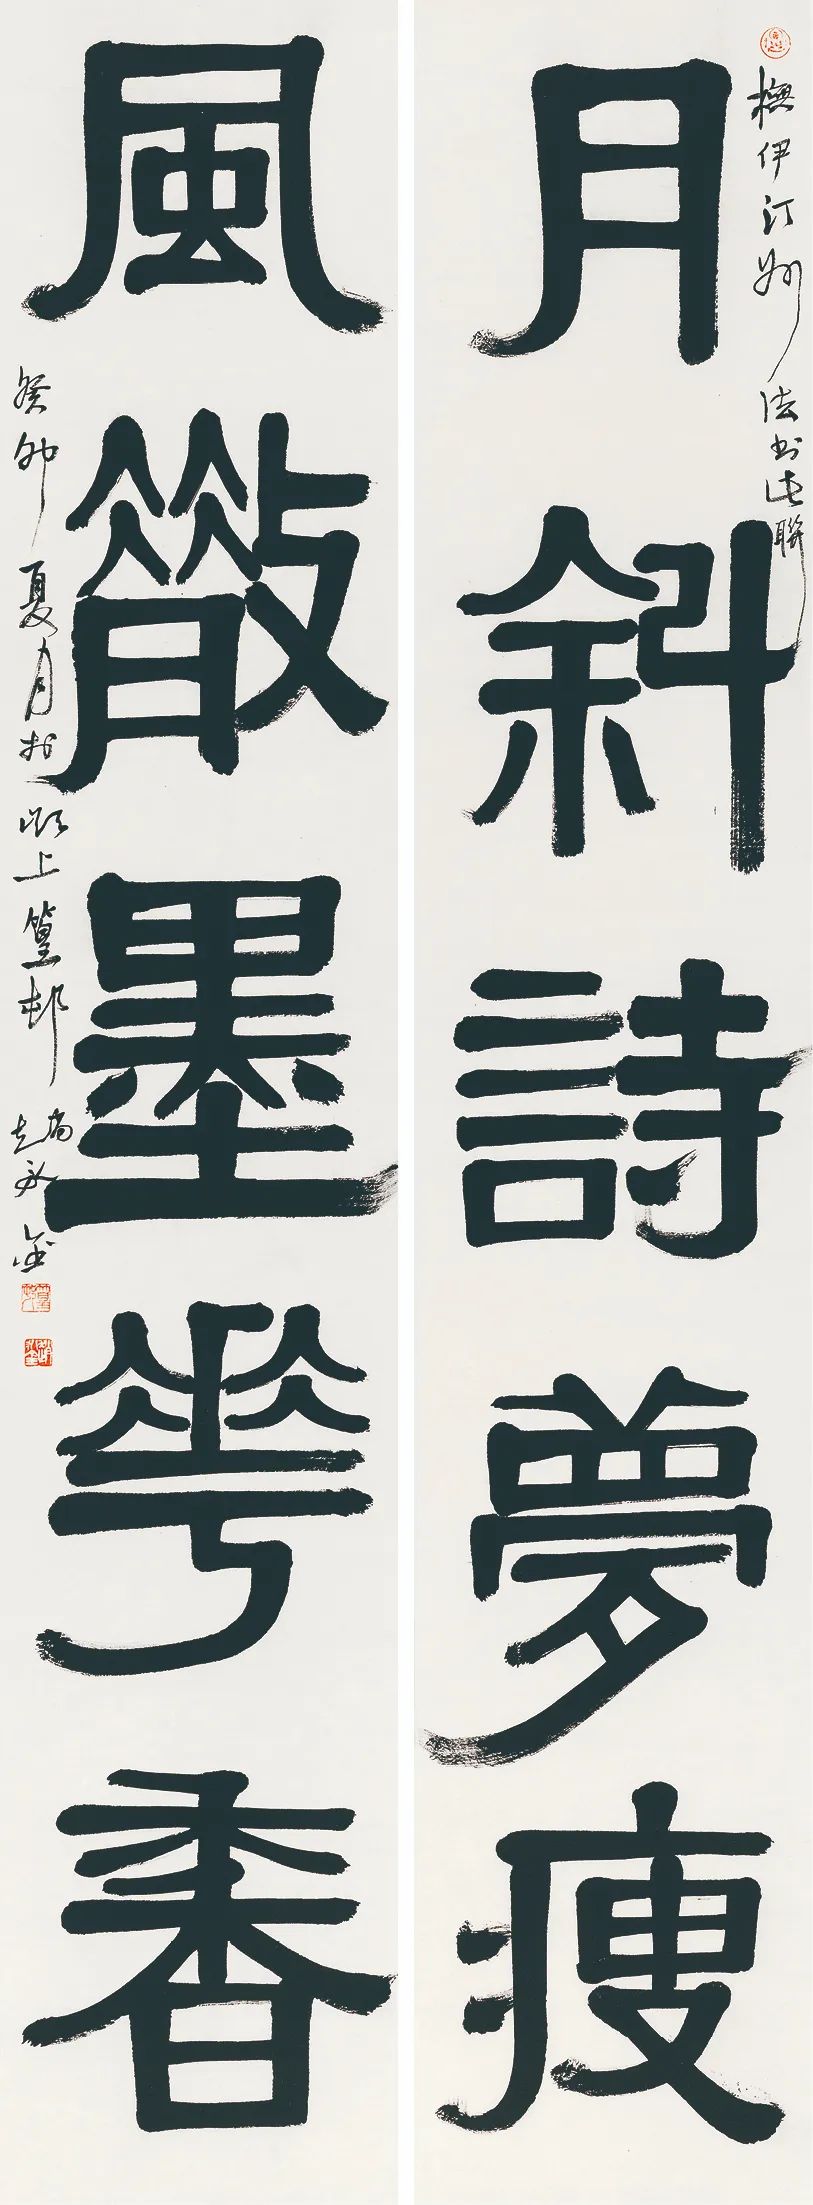 橅伊汀州法書此聯
月斜詩夢瘦
風散墨華香
癸卯夏月於顺上篁邨尚志永金